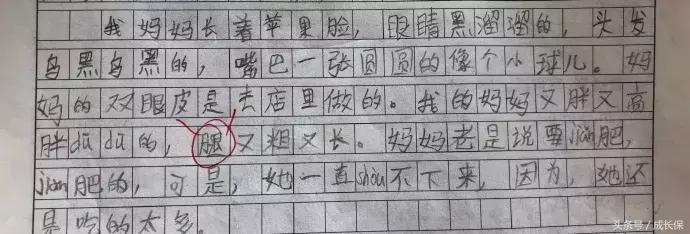 我妈妈长着苹果脸，眼睛黑溜溜的，头发
乌黑乌黑的，嘴巴一张圆圆的像个小球儿。妈
妈的双眼皮是去店里做的。我的妈妈又胖又高
胖dūdū的，腿又粗又长。妈妈老是说要jiǎn肥，
jiǎn肥的，可是，她一直shòu不下来，因为，她还
是吃的太多。
头条号／成长保